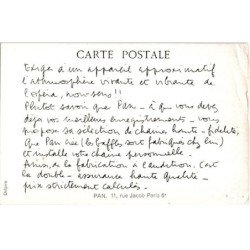 CARTE POSTALE
Exiger d'un appareil approximatif
l'atmosphère vivante et vibrante de
l'opéra, non-sens !!
Plutôt savoir que PAN - à qui vous devez
déjà vos meilleurs enregistrements - vous
propose sa sélection de chaînes haute-fidélité,
Que Pan crée (les baffles sont fabriqués chez lui)
et installe votre chaîne personnelle.
Ainsi, de la fabrication à l'audition, c'est
la double-assurance haute qualité -
prix strictement calculés.
PAN. 11, rue Jacob Paris 6e